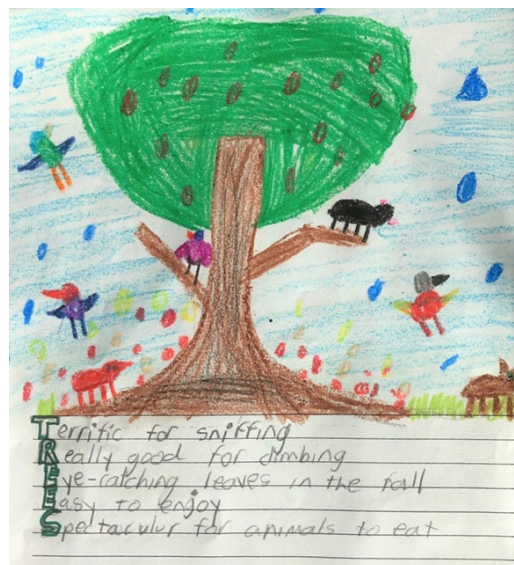 Terrific for sniffing
Really good for climbing
Eye-catching leaves in the fall
Easy to enjoy
Spectacular for animals to eat